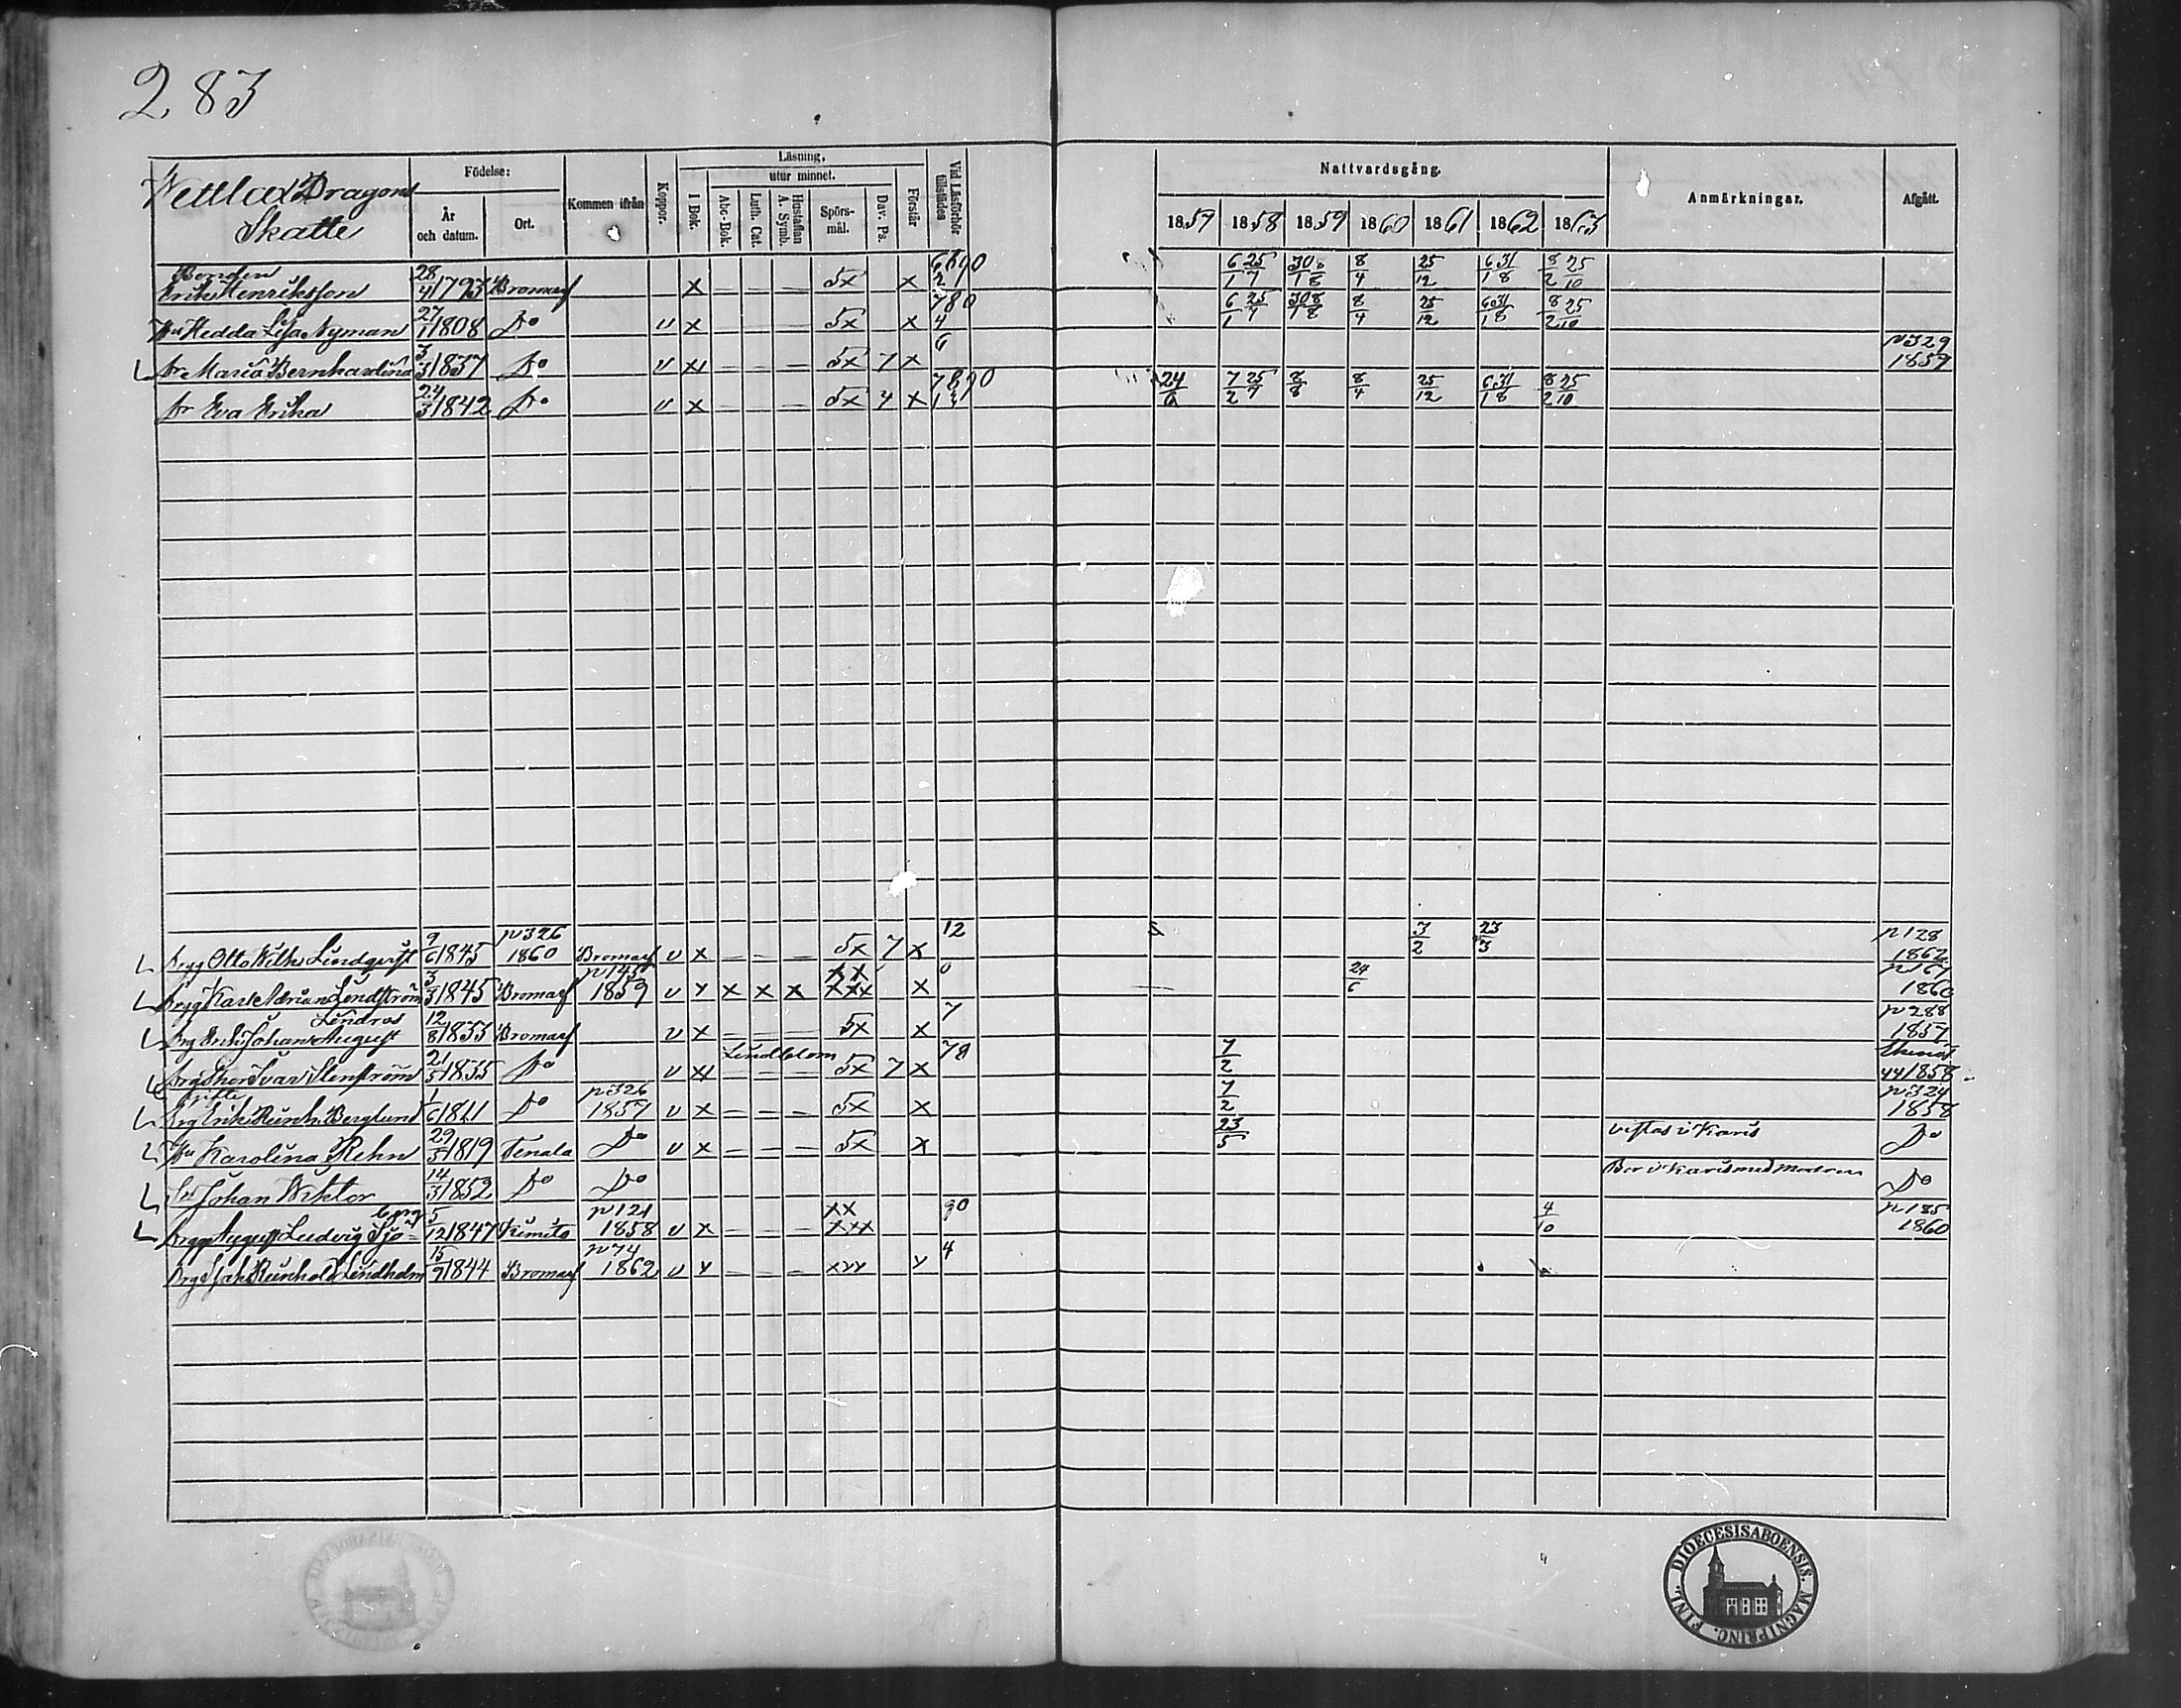 283
Wettlax Dragons
Skatte
Födelse:
År
och datum.
Ort.
Kommen ifrån
Koppor.
Läsning,
utur minnet.
I Bok.
Abc-Bok.
Luth. Cat.
Hustaflan
A. Symb.
Spörs-
mål.
Dav. Ps.
Förstår
Vid Läsförhör
tillstädes
Nattvardsgång.
1859 1858 1859 1860 1861 1862 1863
Anmärkningar.
Afgått.
Bonden
Erik Henriksson 28/4 1793 Bromarf x — — — 5x x 6/1 25/7 8/4 25/12 6/1 31/8 8/2 25/10
Hu Hedda Lisa Nyman 27/1 1808 Do v x — — — 5x x 780 4 6/1 25/7 8/4 25/12 6/1 31/8 8/2 25/10
dr Maria Bernhardina 3/3 1837 Do v x — — — 5x 7 x 6 p 329 1859
dr Eva Erika 24/3 1842 Do v x — — — 5x 7 x 24/6 7/2 25/7 8/8 8/4 25/12 6/1 31/8 8/2 25/10
Otto Wilh. Lindqvist 9/6 1845 p 326 1860 Bromarf v x — — — 5x 7 x 12 3/2 23/3 p 128 1862
Karl Adrian Lindström 3/3 1845 Bromarf p 145 1859 v x x x x xx xxx x 0 24/6 p 167 1860
Lindros
Drg Erik Johan August 12/8 1833 Bromarf v x — — — 5x x 7 p 288 1857
Lindblom
Drg Thor Ivar Stenström 21/5 1835 Do v x — — — 5x 7 x 78 7/2 44 1858
Drg Erik Reinh. Berglund 1/6 1811 Do p 326 1857 v x — — — 5x x 7/2 p 324 1858
Hu Karolina Rehn 29/5 1819 Tenala Do v x — — — 5x x 23/5 vistas i Karis Do
Johan Wiktor 14/3 1852 Do Do Bor i Karis med modren Do
berg
August Ludvig Sjö= 5/12 1847 Kimito p 121 1858 v x — — — xx xxx 90 4/10 p 185 1860
Drg Isak Reinhold Lindholm 15/9 1844 Bromarf p 74 1862 v x — — — xxx x 4
FINL. DIOECESIS ABOENSIS. MAGNI PRINC.